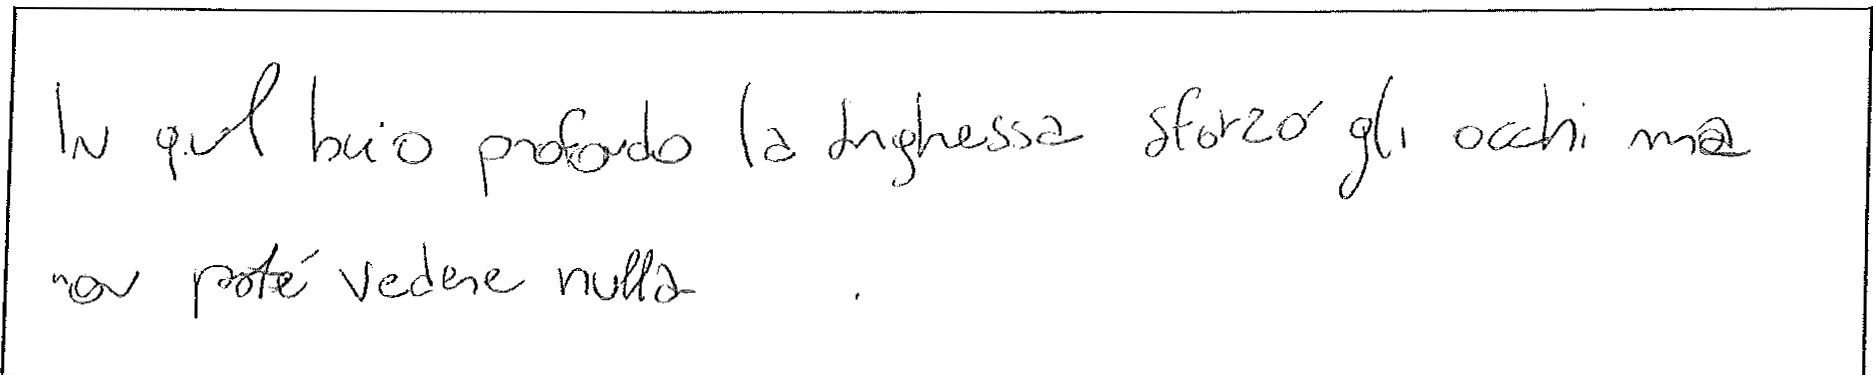 In quel buio profondo la draghessa sforzó gli occhi ma
non poté vedere nulla .